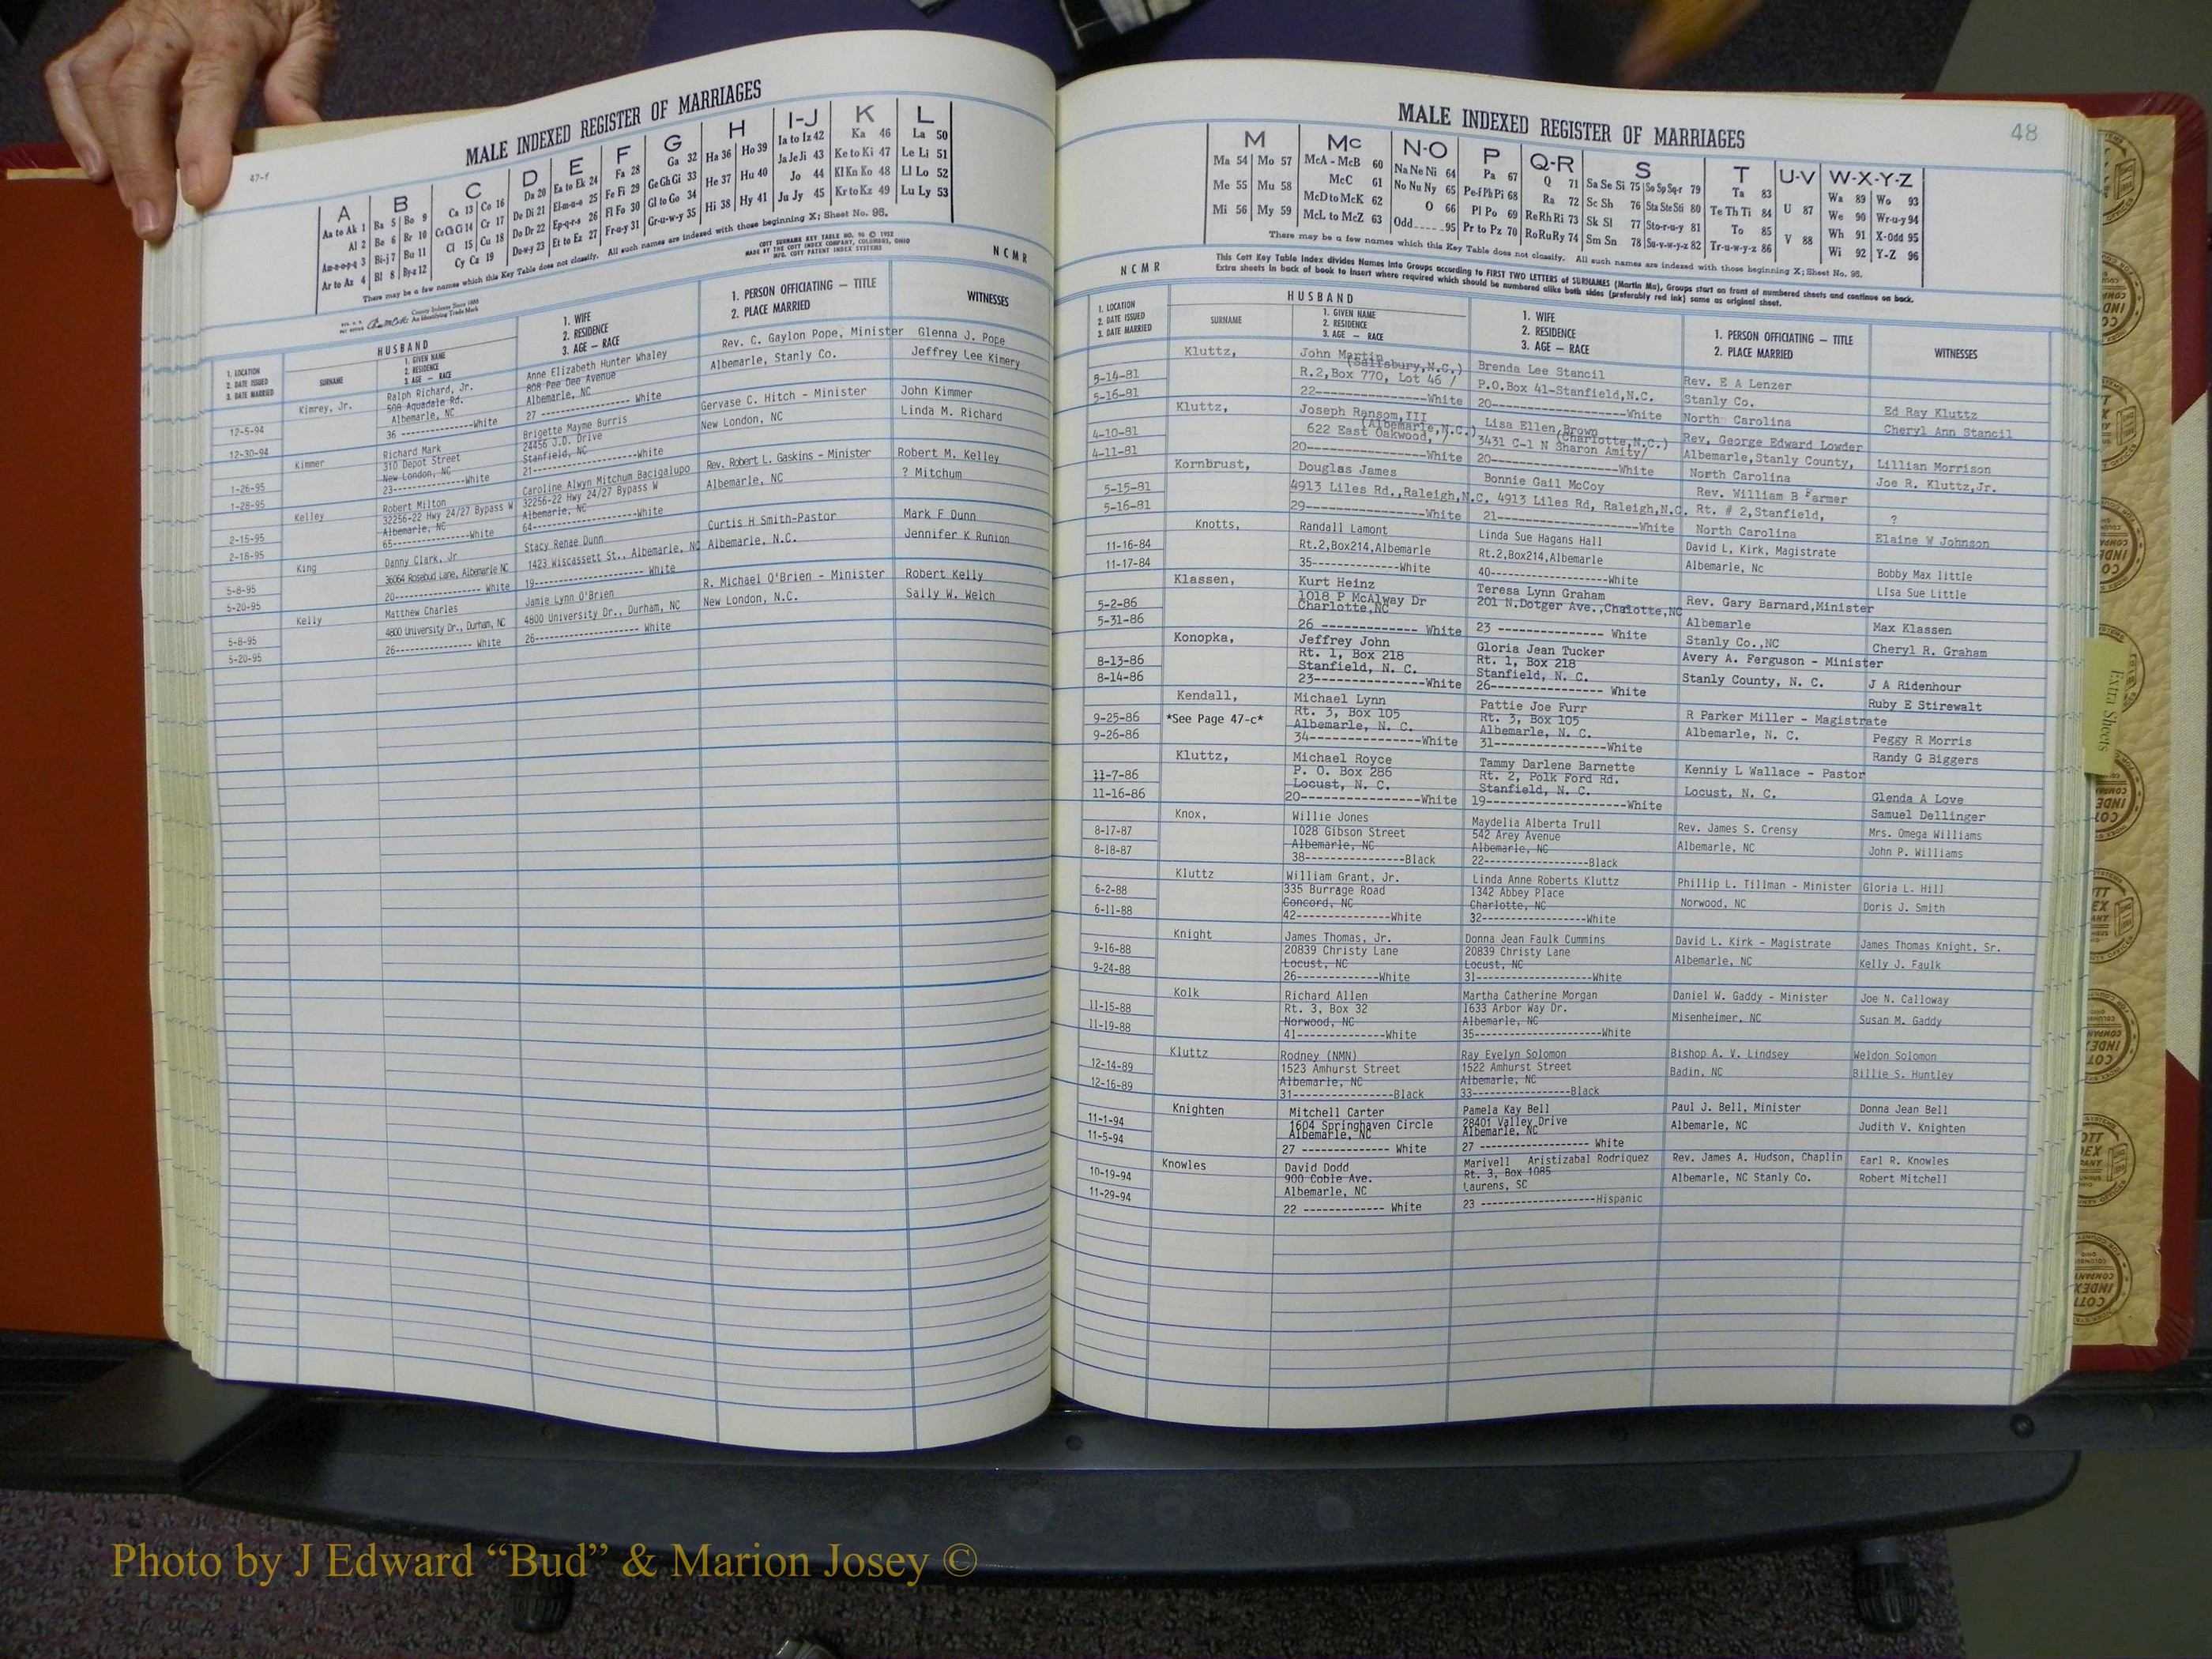 47-f
MALE INDEXED REGISTER OF MARRIAGES
A B C D E F G H I-J K L
Aa to Ak 1 Ba 5 Bo 9 Ca 13 Co 16 Da 20 Ea to Ek 24 Fa 28 Ga 32 Ha 36 Ho 39 Ia to Iz 42 Ka 46 La 50
Al 2 Be 6 Br 10 Ce Ch Ci 14 Cr 17 De Di 21 El-m-n-o 25 Fe Fi 29 Ge Gh Gi 33 He 37 Hu 40 Ja Je Ji 43 Ke to Ki 47 Le Li 51
Am-n-o-p-q 3 Bi-j 7 Bu 11 Cl 15 Cu 18 Do Dr 22 Ep-q-r-s 26 Fl Fo 30 Gl to Go 34 Hi 38 Hy 41 Jo 44 Kl Kn Ko 48 Ll Lo 52
Ar to Az 4 Bl 8 By-z 12 Cy Cz 19 Du-w-y 23 Et to Ez 27 Fr-u-y 31 Gr-u-w-y 35 Ju Jy 45 Kr to Kz 49 Lu Ly 53
There may be a few names which this Key Table does not classify. All such names are indexed with those beginning X; Sheet No. 98.
County Indexes Since 1888
An Identifying Trade Mark
COTT SURNAME KEY TABLE NO. 96 © 1952
MADE BY THE COTT INDEX COMPANY, COLUMBUS, OHIO
MFG. COTT PATENT INDEX SYSTEMS
NCMR
1. LOCATION
2. DATE ISSUED
3. DATE MARRIED
HUSBAND
SURNAME
1. GIVEN NAME
2. RESIDENCE
3. AGE — RACE
1. WIFE
2. RESIDENCE
3. AGE — RACE
1. PERSON OFFICIATING — TITLE
2. PLACE MARRIED
WITNESSES
Kimrey, Jr. Ralph Richard, Jr. Anne Elizabeth Hunter Whaley Rev. C. Gaylon Pope, Minister Glenna J. Pope
12-5-94 508 Aquadale Rd. 808 Pee Dee Avenue Albemarle, Stanly Co. Jeffrey Lee Kimery
12-30-94 Albemarle, NC Albemarle, NC
36 --------------White 27 ---------------- White
Kimmer Richard Mark Brigette Mayme Burris Gervase C. Hitch - Minister John Kimmer
1-26-95 310 Depot Street 24456 J.D. Drive New London, NC Linda M. Richard
1-28-95 New London, NC Stanfield, NC
23----------------White 21------------------White
Kelley Robert Milton Caroline Alwyn Mitchum Bacigalupo Rev. Robert L. Gaskins - Minister Robert M. Kelley
2-15-95 32256-22 Hwy 24/27 Bypass W 32256-22 Hwy 24/27 Bypass W Albemarle, NC ? Mitchum
2-18-95 Albemarle, NC Albemarle, NC
65----------------White 64------------------White
King Danny Clark, Jr Stacy Renae Dunn Curtis H Smith-Pastor Mark F Dunn
5-8-95 36064 Rosebud Lane, Albemarle NC 1423 Wiscassett St., Albemarle, NC Albemarle, N.C. Jennifer K Runion
5-20-95 20---------------- White 19------------------- White
Kelly Matthew Charles Jamie Lynn O'Brien R. Michael O'Brien - Minister Robert Kelly
5-8-95 4800 University Dr., Durham, NC 4800 University Dr., Durham, NC New London, N.C. Sally W. Welch
5-20-95 26---------------- White 26------------------- White
48
MALE INDEXED REGISTER OF MARRIAGES
M Mc N-O P Q-R S T U-V W-X-Y-Z
Ma 54 Mo 57 McA - McB 60 Na Ne Ni 64 Pa 67 Q 71 Sa Se Si 75 So Sp Sq-r 79 Ta 83 U 87 Wa 89 Wo 93
Me 55 Mu 58 McC 61 No Nu Ny 65 Pe-f Ph Pi 68 Ra 72 Sc Sh 76 Sta Ste Sti 80 Te Th Ti 84 V 88 We 90 Wr-u-y 94
Mi 56 My 59 McD to McK 62 O 66 Pl Po 69 Re Rh Ri 73 Sk Sl 77 Sto-r-u-y 81 To 85 Wh 91 X-Odd 95
McL to McZ 63 Odd.....95 Pr to Pz 70 Ro Ru Ry 74 Sm Sn 78 Su-v-w-y-z 82 Tr-u-w-y-z 86 Wi 92 Y-Z 96
There may be a few names which this Key Table does not classify. All such names are indexed with those beginning X; Sheet No. 98.
NCMR
This Cott Key Table Index divides Names into Groups according to FIRST TWO LETTERS of SURNAMES (Martin Ma), Groups start on front of numbered sheets and continue on back.
Extra sheets in back of book to insert where required which should be numbered alike both sides (preferably red ink) same as original sheet.
1. LOCATION
2. DATE ISSUED
3. DATE MARRIED
HUSBAND
SURNAME
1. GIVEN NAME
2. RESIDENCE
3. AGE — RACE
1. WIFE
2. RESIDENCE
3. AGE — RACE
1. PERSON OFFICIATING — TITLE
2. PLACE MARRIED
WITNESSES
Kluttz, John Martin Brenda Lee Stancil Rev. E A Lenzer Ed Ray Kluttz
5-14-81 (Salisbury,N.C.) P.O.Box 41-Stanfield,N.C. Stanly Co. Cheryl Ann Stancil
5-16-81 R.2,Box 770, Lot 46 / North Carolina
22----------------White 20------------------White
Kluttz, Joseph Ransom,III Lisa Ellen Brown Rev, George Edward Lowder Lillian Morrison
4-10-81 (Albemarle,N.C.) (Charlotte,N.C.) Albemarle,Stanly County, Joe R. Kluttz,Jr.
4-11-81 622 East Oakwood, / 3431 C-1 N Sharon Amity/ North Carolina
20------------------White 20------------------White
Kornbrust, Douglas James Bonnie Gail McCoy Rev. William B Farmer ?
5-15-81 4913 Liles Rd.,Raleigh,N.C. 4913 Liles Rd, Raleigh,N.C. Rt. # 2,Stanfield, Elaine W Johnson
5-16-81 29------------------White 21------------------White North Carolina
Knotts, Randall Lamont Linda Sue Hagans Hall David L, Kirk, Magistrate Bobby Max little
11-16-84 Rt.2,Box214,Albemarle Rt.2,Box214,Albemarle Albemarle, Nc LIsa Sue Little
11-17-84 35--------------White 40----------------White
Klassen, Kurt Heinz Teresa Lynn Graham Rev. Gary Barnard,Minister Max Klassen
5-2-86 1018 P McAlway Dr 201 N.Dotger Ave.,Chalotte,NC Albemarle Cheryl R. Graham
5-31-86 Charlotte,NC Stanly Co.,NC
26 -------------- White 23 --------------- White
Konopka, Jeffrey John Gloria Jean Tucker Avery A. Ferguson - Minister J A Ridenhour
8-13-86 Rt. 1, Box 218 Rt. 1, Box 218 Stanly County, N. C. Ruby E Stirewalt
8-14-86 Stanfield, N. C. Stanfield, N. C.
23----------------White 26---------------- White
Kendall, Michael Lynn Pattie Joe Furr R Parker Miller - Magistrate Peggy R Morris
9-25-86 *See Page 47-c* Rt. 3, Box 105 Rt. 3, Box 105 Albemarle, N. C. Randy G Biggers
9-26-86 Albemarle, N. C. Albemarle, N. C.
34----------------White 31----------------White
Kluttz, Michael Royce Tammy Darlene Barnette Kenniy L Wallace - Pastor Glenda A Love
11-7-86 P. O. Box 286 Rt. 2, Polk Ford Rd. Locust, N. C. Samuel Dellinger
11-16-86 Locust, N. C. Stanfield, N. C.
20-----------------White 19--------------------White
Knox, Willie Jones Maydelia Alberta Trull Rev. James S. Crensy Mrs. Omega Williams
8-17-87 1028 Gibson Street 542 Arey Avenue Albemarle, NC John P. Williams
8-18-87 Albemarle, NC Albemarle, NC
38----------------Black 22-----------------Black
Kluttz William Grant, Jr. Linda Anne Roberts Kluttz Phillip L. Tillman - Minister Gloria L. Hill
6-2-88 335 Burrage Road 1342 Abbey Place Norwood, NC Doris J. Smith
6-11-88 Concord, NC Charlotte, NC
42---------------White 32-----------------White
Knight James Thomas, Jr. Donna Jean Faulk Cummins David L. Kirk - Magistrate James Thomas Knight, Sr.
9-16-88 20839 Christy Lane 20839 Christy Lane Albemarle, NC Kelly J. Faulk
9-24-88 Locust, NC Locust, NC
26--------------White 31-------------------White
Kolk Richard Allen Martha Catherine Morgan Daniel W. Gaddy - Minister Joe N. Calloway
11-15-88 Rt. 3, Box 32 1633 Arbor Way Dr. Misenheimer, NC Susan M. Gaddy
11-19-88 Norwood, NC Albemarle, NC
41---------------White 35--------------------White
Kluttz Rodney (NMN) Ray Evelyn Solomon Bishop A. V. Lindsey Weldon Solomon
12-14-89 1523 Amhurst Street 1522 Amhurst Street Badin, NC Billie S. Huntley
12-16-89 Albemarle, NC Albemarle, NC
31-----------------Black 33----------------Black
Knighten Mitchell Carter Pamela Kay Bell Paul J. Bell, Minister Donna Jean Bell
11-1-94 1604 Springhaven Circle 28401 Valley Drive Albemarle, NC Judith V. Knighten
11-5-94 Albemarle, NC Albemarle, NC
27 -------------- White 27 ------------------ White
Knowles David Dodd Marivell Aristizabal Rodriquez Rev. James A. Hudson, Chaplin Earl R. Knowles
10-19-94 900 Coble Ave. Rt. 3, Box 1085 Albemarle, NC Stanly Co. Robert Mitchell
11-29-94 Albemarle, NC Laurens, SC
22 ------------- White 23 -------------------Hispanic
Extra Sheets
Photo by J Edward “Bud” & Marion Josey ©